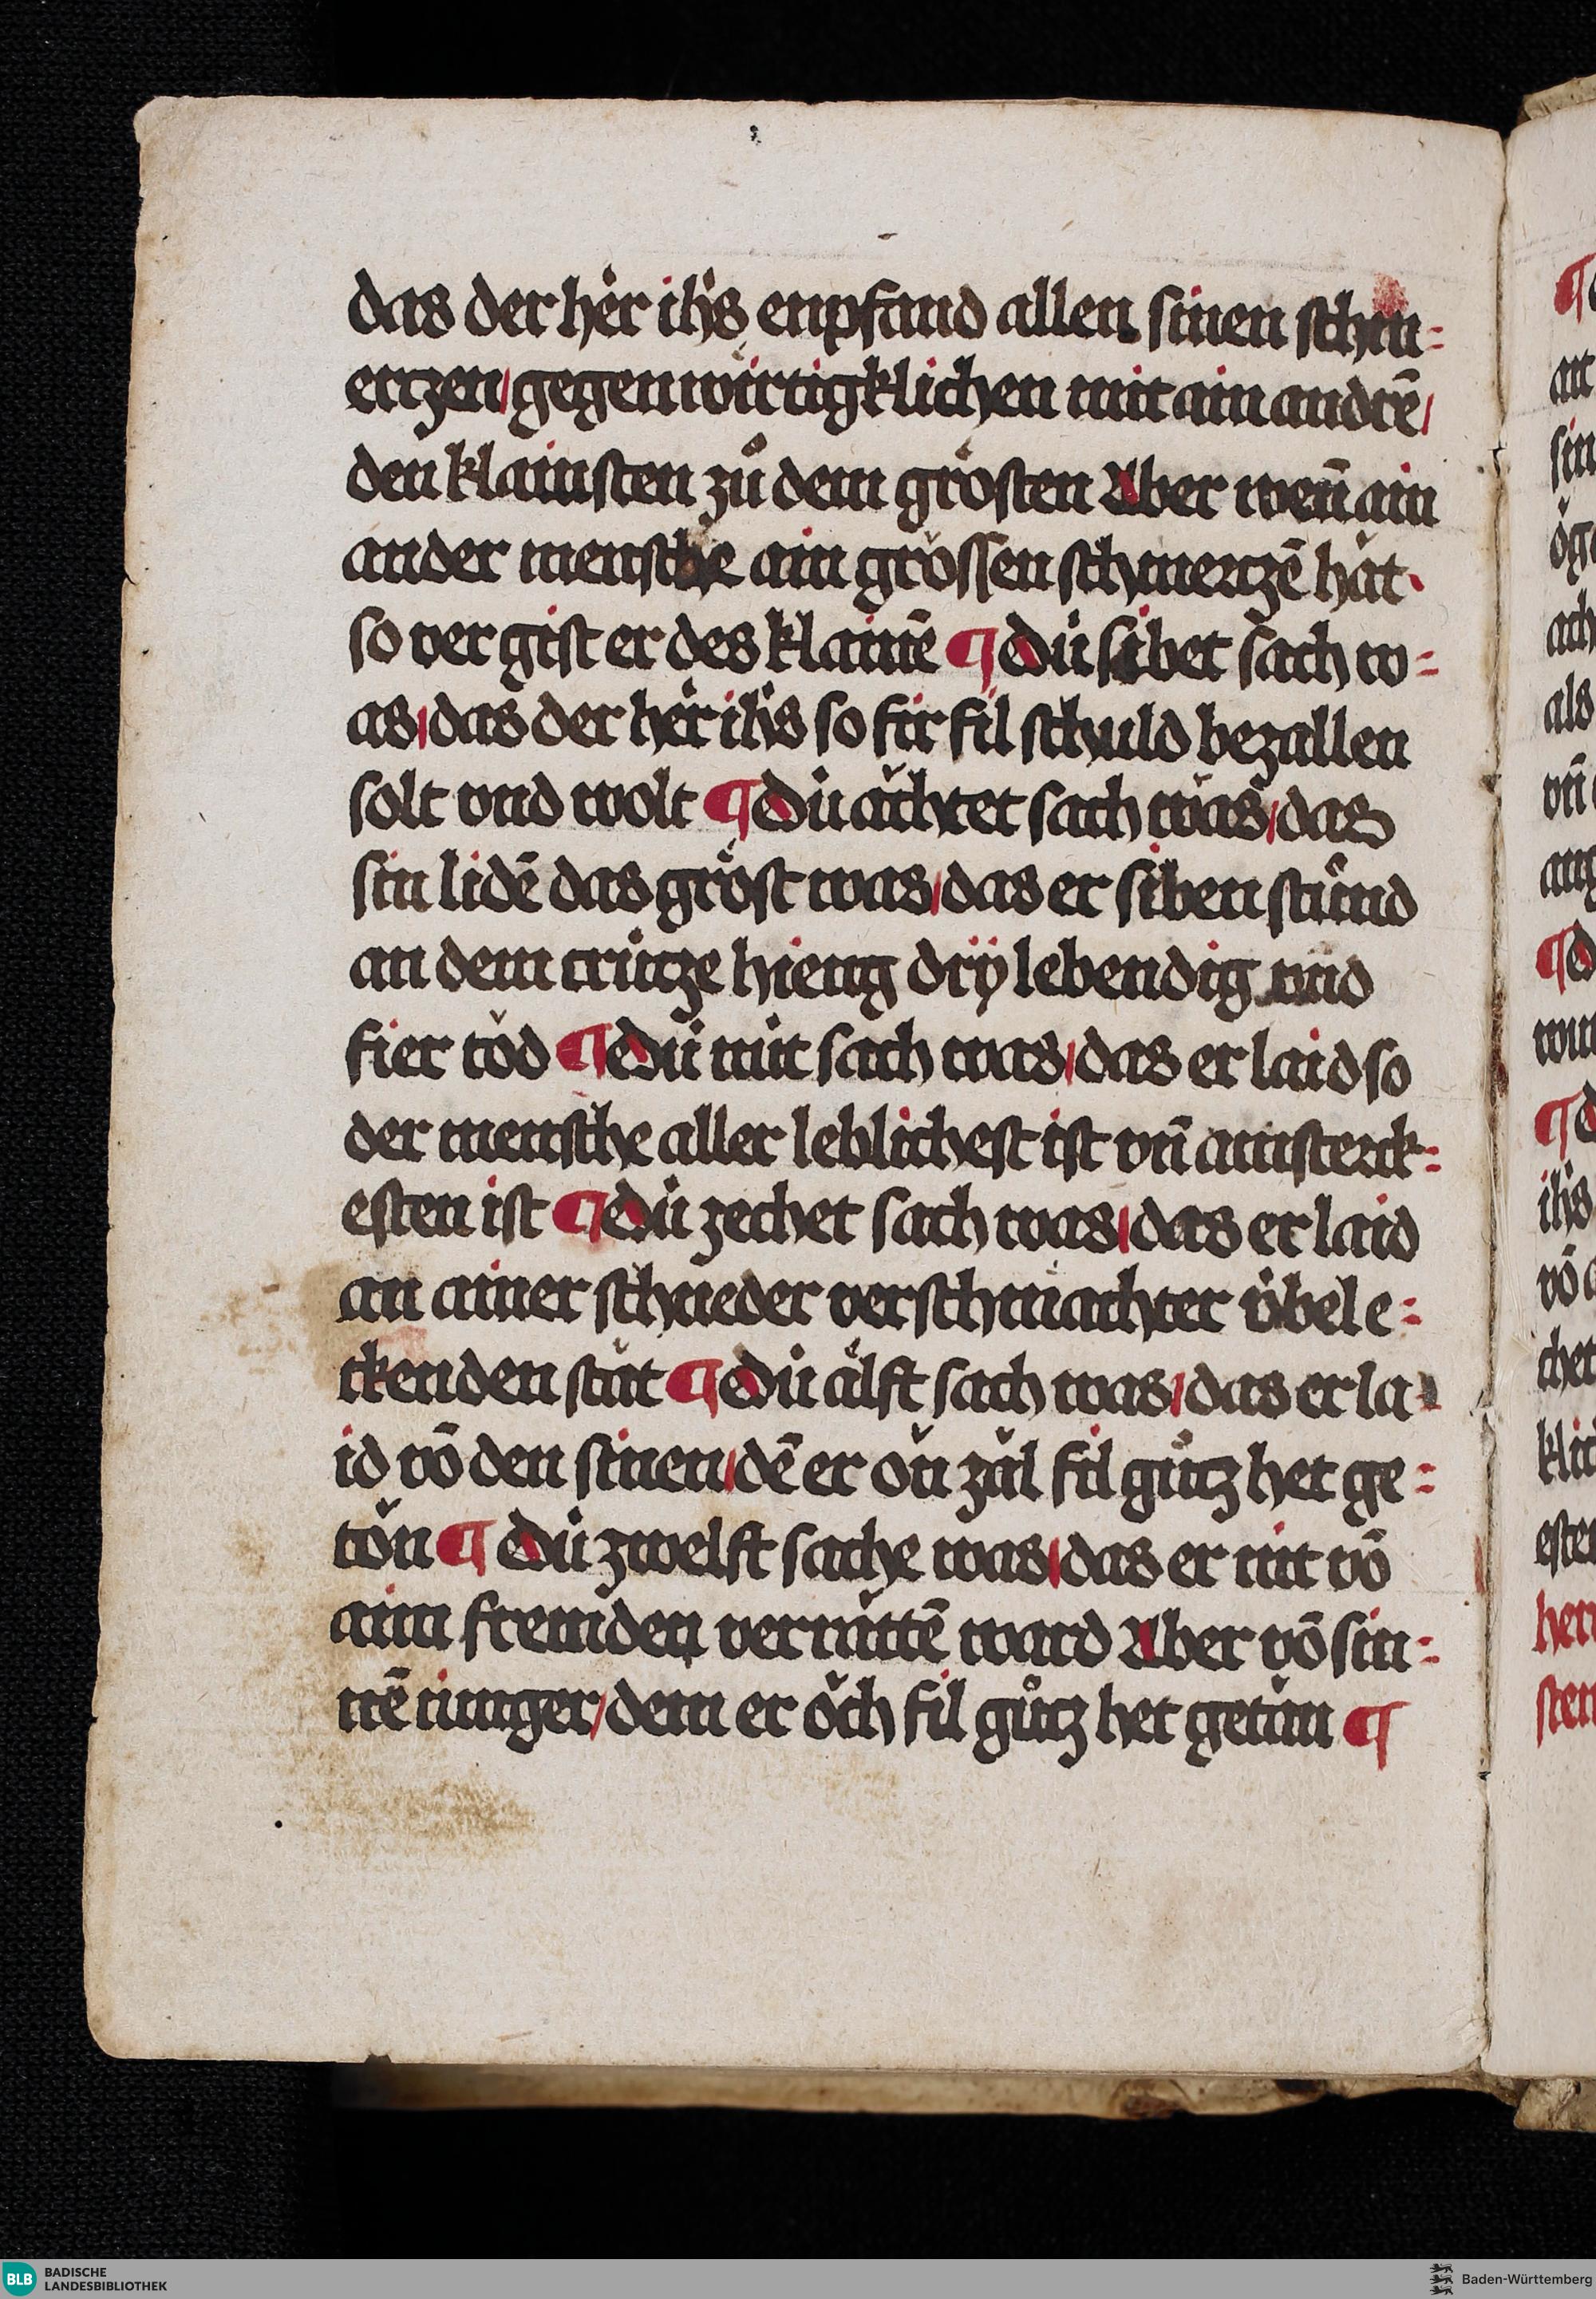 das der her ihs enpfand allen sinen schm=
ertzen/ gegenwirtigklichen mit ain andrē/
den klainsten zů dem grösten Aber weñ ain
ander mensche ain grössen schmertzē hăt
so vergist er des klainē ¶ Dü sibet sach w=
as/ das der her ihs so fir fil schuld bezallen
solt vnd wolt ¶ Dü ächtet sach was/ das
sin lidē das gröst was/ das er siben stünd
an dem crütze hieng dry lebendig vnd
fier tŏd ¶ Dü nüt sach was/ das er laid so
der mensche aller leblichest ist vñ am sterck=
esten ist ¶ Dü zechet sach was/ das er laid
an ainer schneder verschmachter übel e=
ckenden stăt ¶ Dü älft sach was/ das er la=
id vō den sinen/ dē er ŏn zăl fil gůtz het ge=
tŏn ¶ Dü zwelft sache was/ das er nit vō
aim fremden verrăttē ward Aber vō sin=
nē iunger/ dem er ŏch fil gůtz het getăn ¶
BLB BADISCHE
LANDESBIBLIOTHEK
Baden-Württemberg